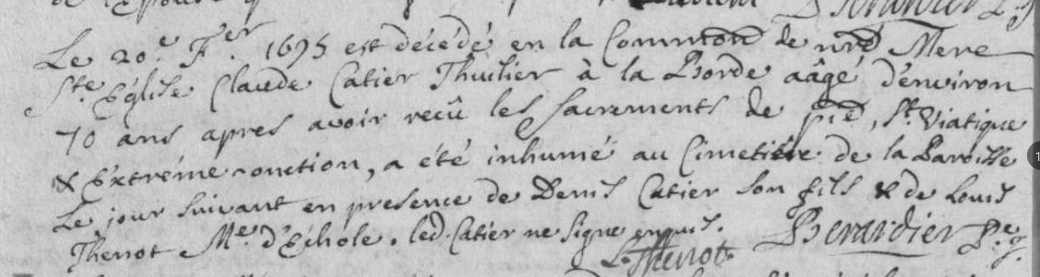 Le 20.e F.er 1695 est décédé en la Common de nre Mere
Ste Eglise Claude Catier Thuilier à la Borde aâgé d'environ
70 ans apres avoir reçû les Sacrements de pnce, St. Viatique
& Extréme-onction, a été inhumé au Cimetiére de la Paroisse
Le jour suivant en presence de Denis Catier son fils & de Louis
Therrot Me. d'Echole. led. Catier ne signe enquis.
L. Therrot Berardier